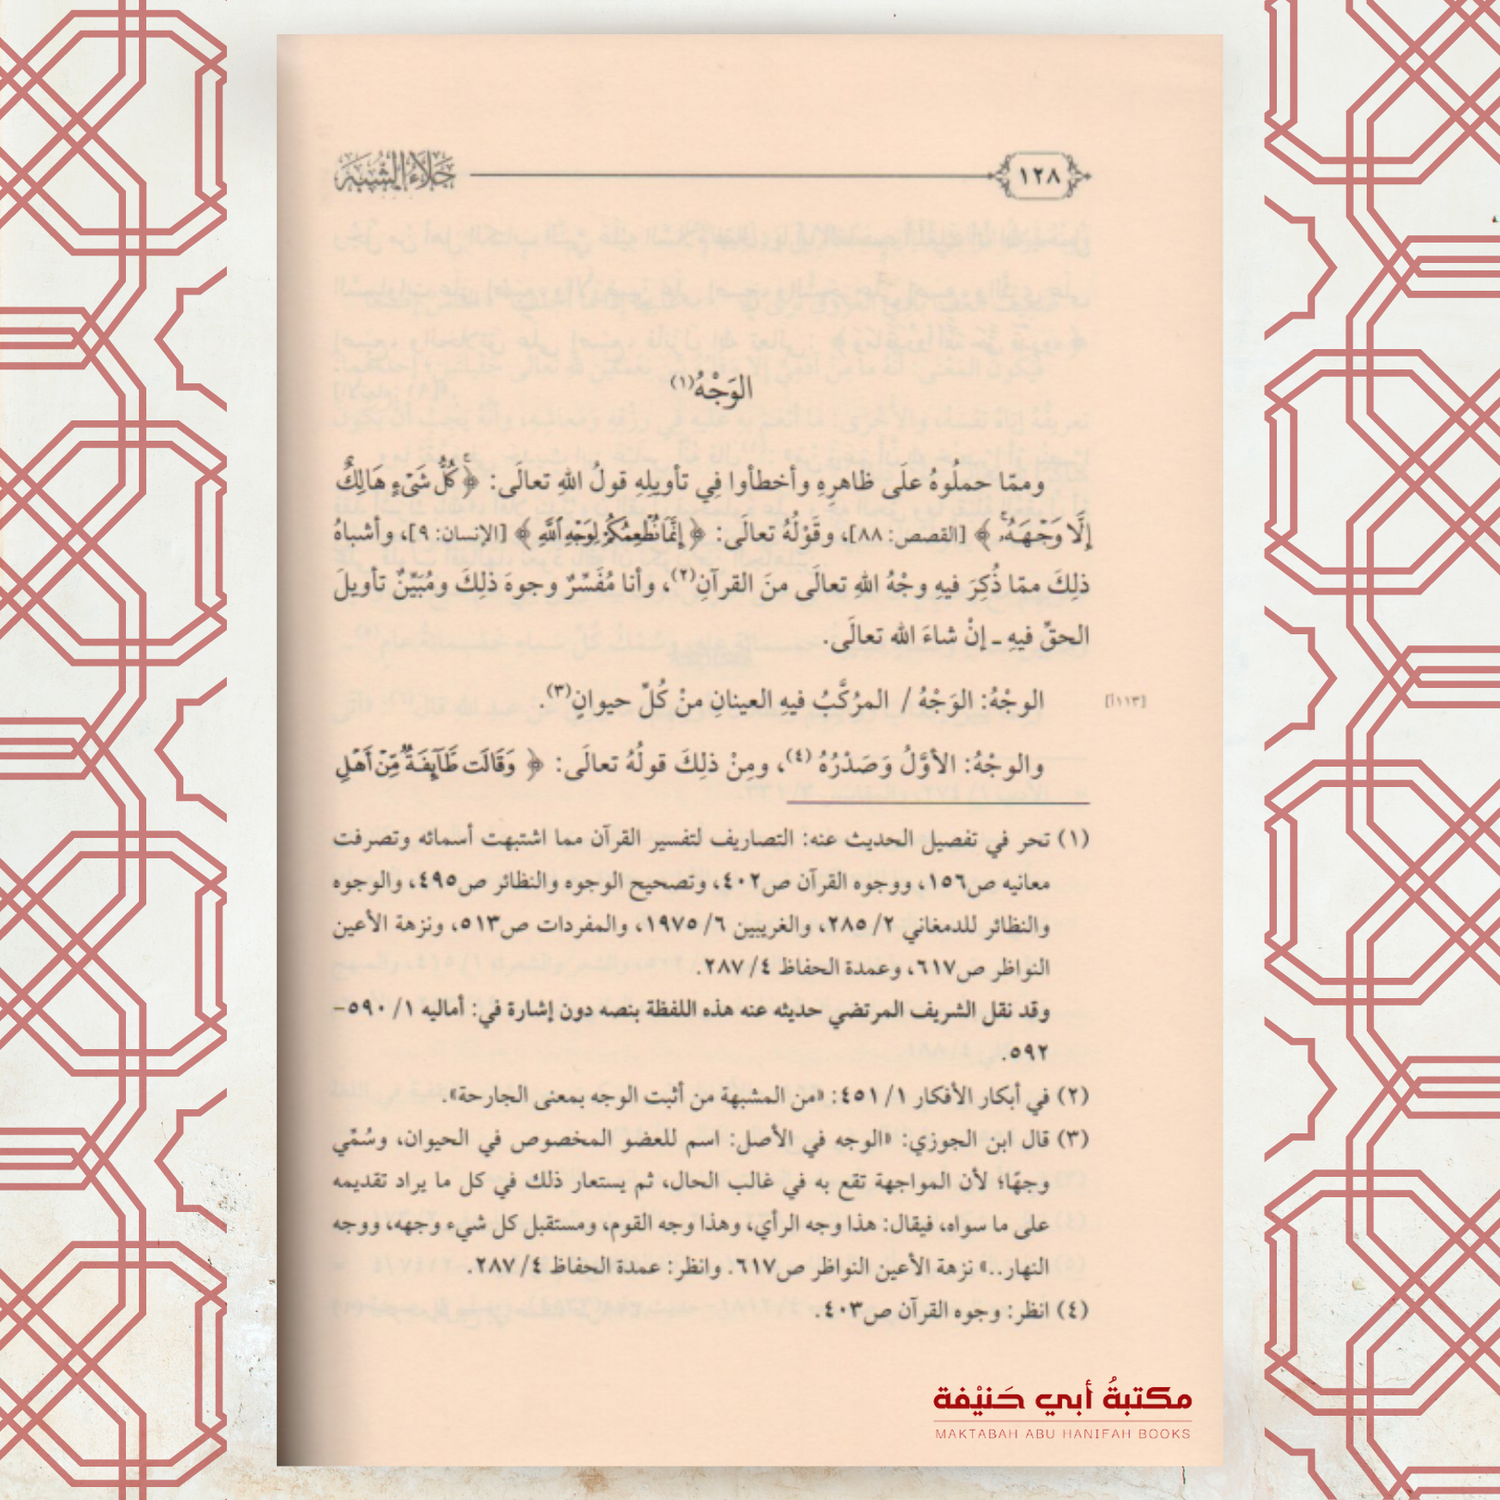 ١٢٨ جلاء الشبه
الوَجْهُ(١)
وممّا حملُوهُ علَى ظاهرِهِ وأخطأوا فِي تأويلِهِ قولُ اللهِ تعالَى: ﴿ كُلُّ شَىْءٍ هَالِكٌ
إِلَّا وَجْهَهُۥ ﴾ [القصص: ٨٨]، وقَوْلُهُ تعالَى: ﴿ إِنَّمَا نُطْعِمُكُمْ لِوَجْهِ ٱللَّهِ ﴾ [الإنسان: ٩]، وأشباهُ
ذلِكَ ممّا ذُكِرَ فيهِ وجْهُ اللهِ تعالَى منَ القرآنِ(٢)، وأنا مُفَسِّرٌ وجوهَ ذلِكَ ومُبَيِّنٌ تأويلَ
الحقِّ فيهِ ـ إنْ شاءَ الله تعالَى.
الوجْهُ: الوَجْهُ / المرُكَّبُ فيهِ العينانِ منْ كُلِّ حيوانٍ(٣). [١١٣أ]
والوجْهُ: الأوَّلُ وَصَدْرُهُ (٤)، ومِنْ ذلِكَ قولُهُ تعالَى: ﴿ وَقَالَت طَّآئِفَةٌ مِّنْ أَهْلِ
(١) تحر في تفصيل الحديث عنه: التصاريف لتفسير القرآن مما اشتبهت أسمائه وتصرفت
معانيه ص١٥٦، ووجوه القرآن ص٤٠٢، وتصحيح الوجوه والنظائر ص٤٩٥، والوجوه
والنظائر للدمغاني ٢/ ٢٨٥، والغريبين ٦/ ١٩٧٥، والمفردات ص٥١٣، ونزهة الأعين
النواظر ص٦١٧، وعمدة الحفاظ ٤/ ٢٨٧.
وقد نقل الشريف المرتضي حديثه عنه هذه اللفظة بنصه دون إشارة في: أماليه ١/ ٥٩٠-
٥٩٢.
(٢) في أبكار الأفكار ١/ ٤٥١: «من المشبهة من أثبت الوجه بمعنى الجارحة».
(٣) قال ابن الجوزي: «الوجه في الأصل: اسم للعضو المخصوص في الحيوان، وسُمّي
وجهًا؛ لأن المواجهة تقع به في غالب الحال، ثم يستعار ذلك في كل ما يراد تقديمه
على ما سواه، فيقال: هذا وجه الرأي، وهذا وجه القوم، ومستقبل كل شيء وجهه، ووجه
النهار..» نزهة الأعين النواظر ص٦١٧. وانظر: عمدة الحفاظ ٤/ ٢٨٧.
(٤) انظر: وجوه القرآن ص٤٠٣.
مكتبةُ أبي حَنيْفة
MAKTABAH ABU HANIFAH BOOKS